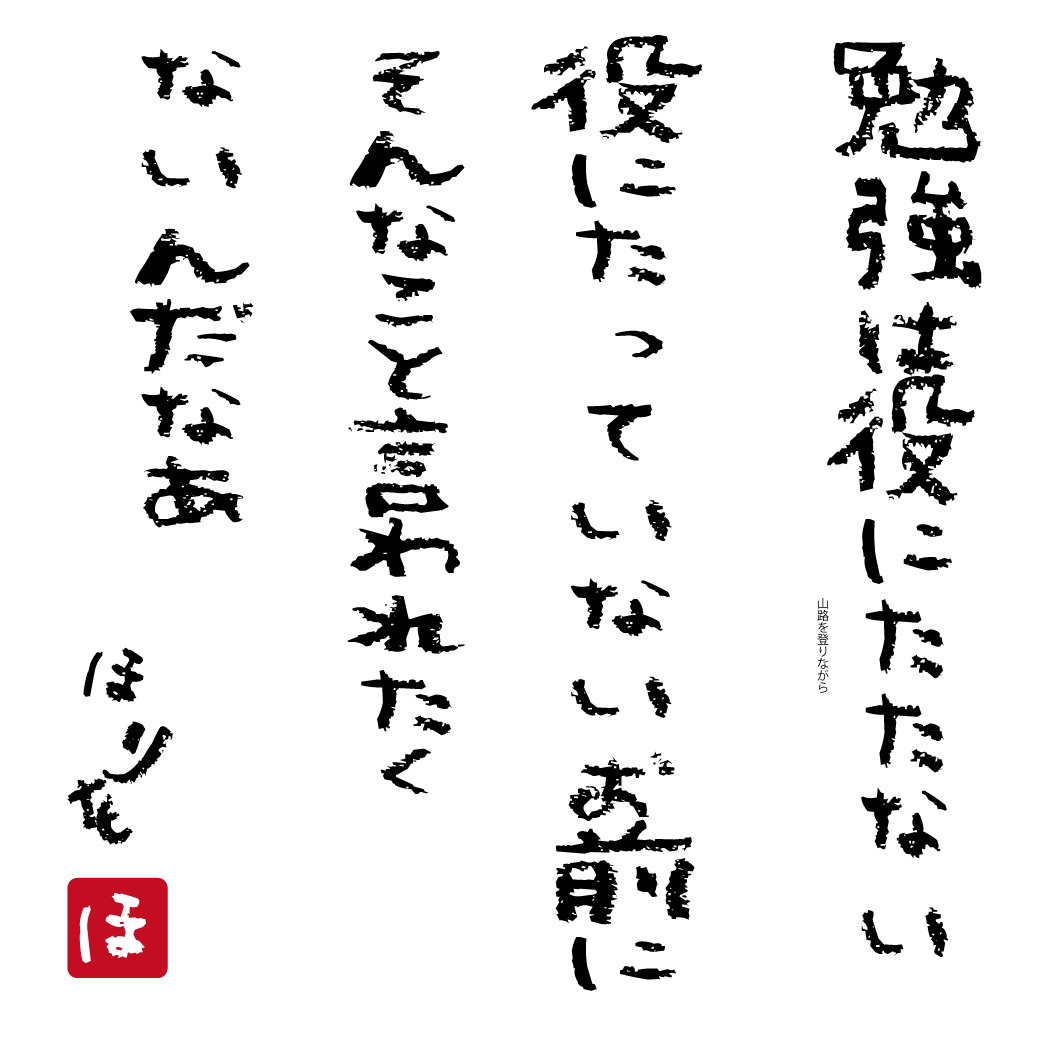 勉強は役にたたない
山路を登りながら
役にたっていないお前に
そんなこと言われたく
ないんだなあ
ほりを
ほ